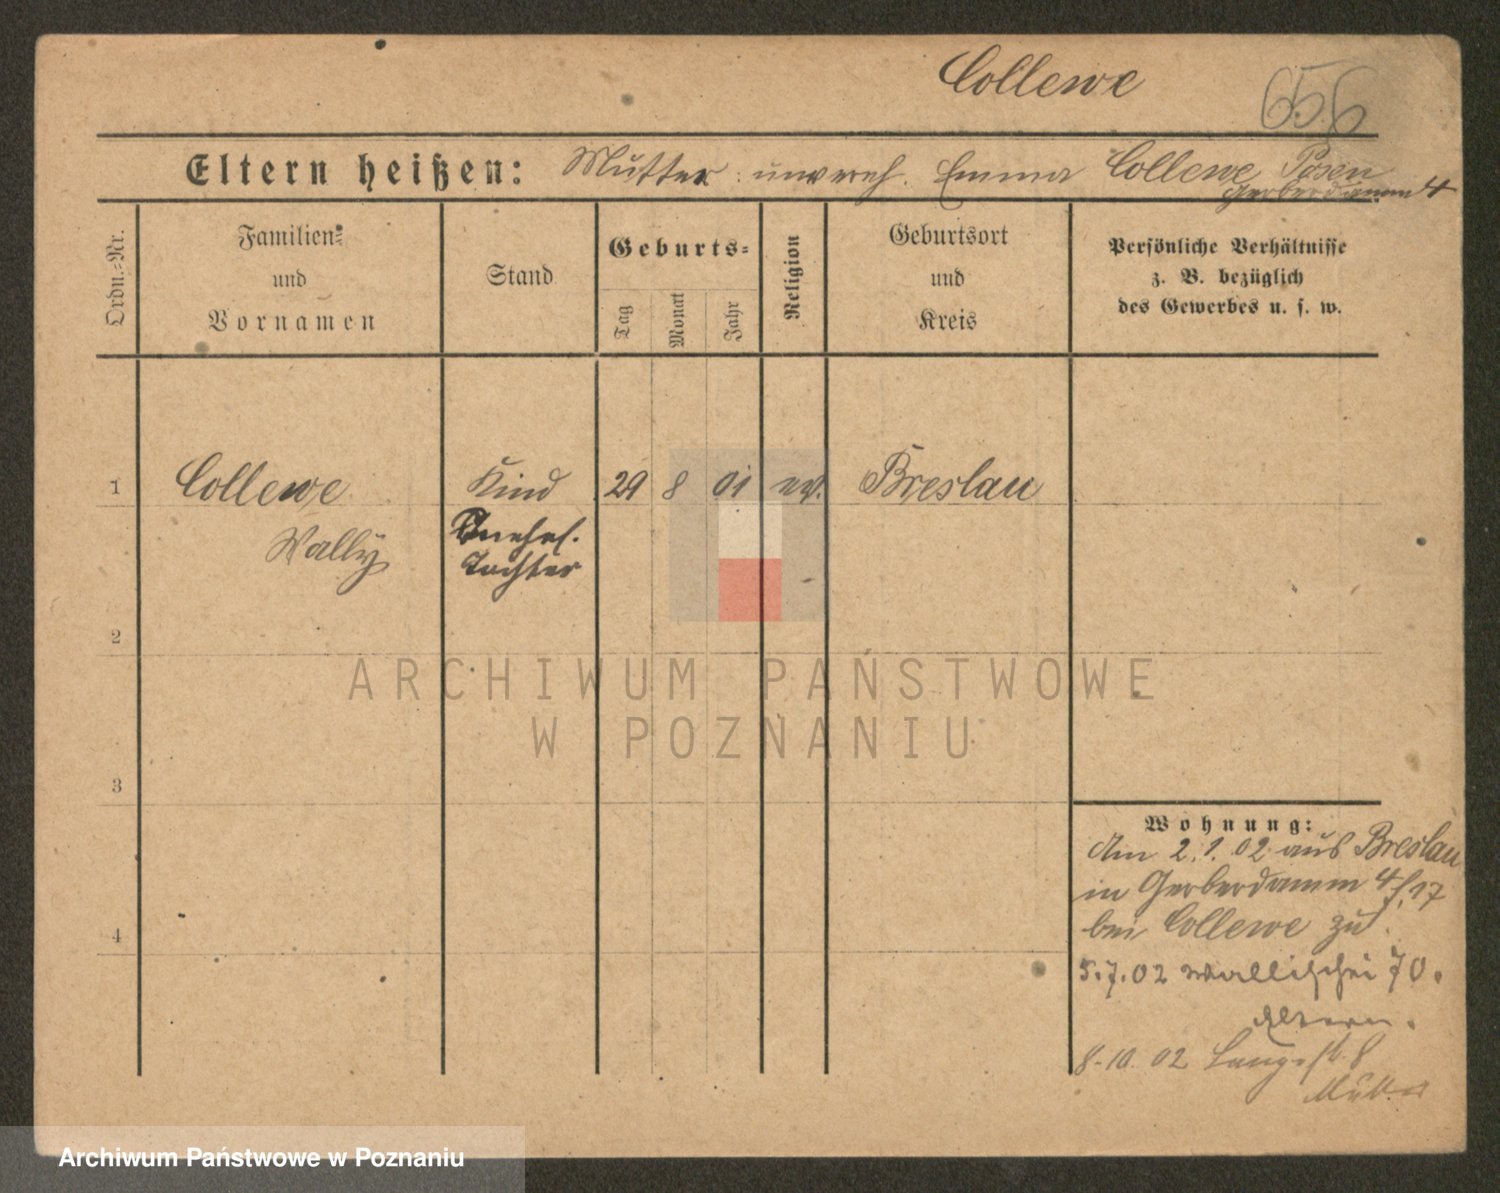 Collewe
656
Eltern heißen: Mutter: unvereh. Emma Collewe, Posen
Gerberdamm 4
Ordn.-Nr.
Familien-
und
Vornamen
Stand
Geburts-
Tag
Monat
Jahr
Religion
Geburtsort
und
Kreis
Persönliche Verhältnisse
z. B. bezüglich
des Gewerbes u. s. w.
1 Collewe Kind 29 8 01 ev. Breslau
Wally unehel.
Tochter
2
ARCHIWUM PAŃSTWOWE
W POZNANIU
3
4
Wohnung:
Am 2.1.02 aus Breslau
in Gerberdamm 4 17
bei Collewe zu.
5.7.02 Wallischei 70.
Eltern.
8.10.02 Langestr. 8
Mutter
Archiwum Państwowe w Poznaniu